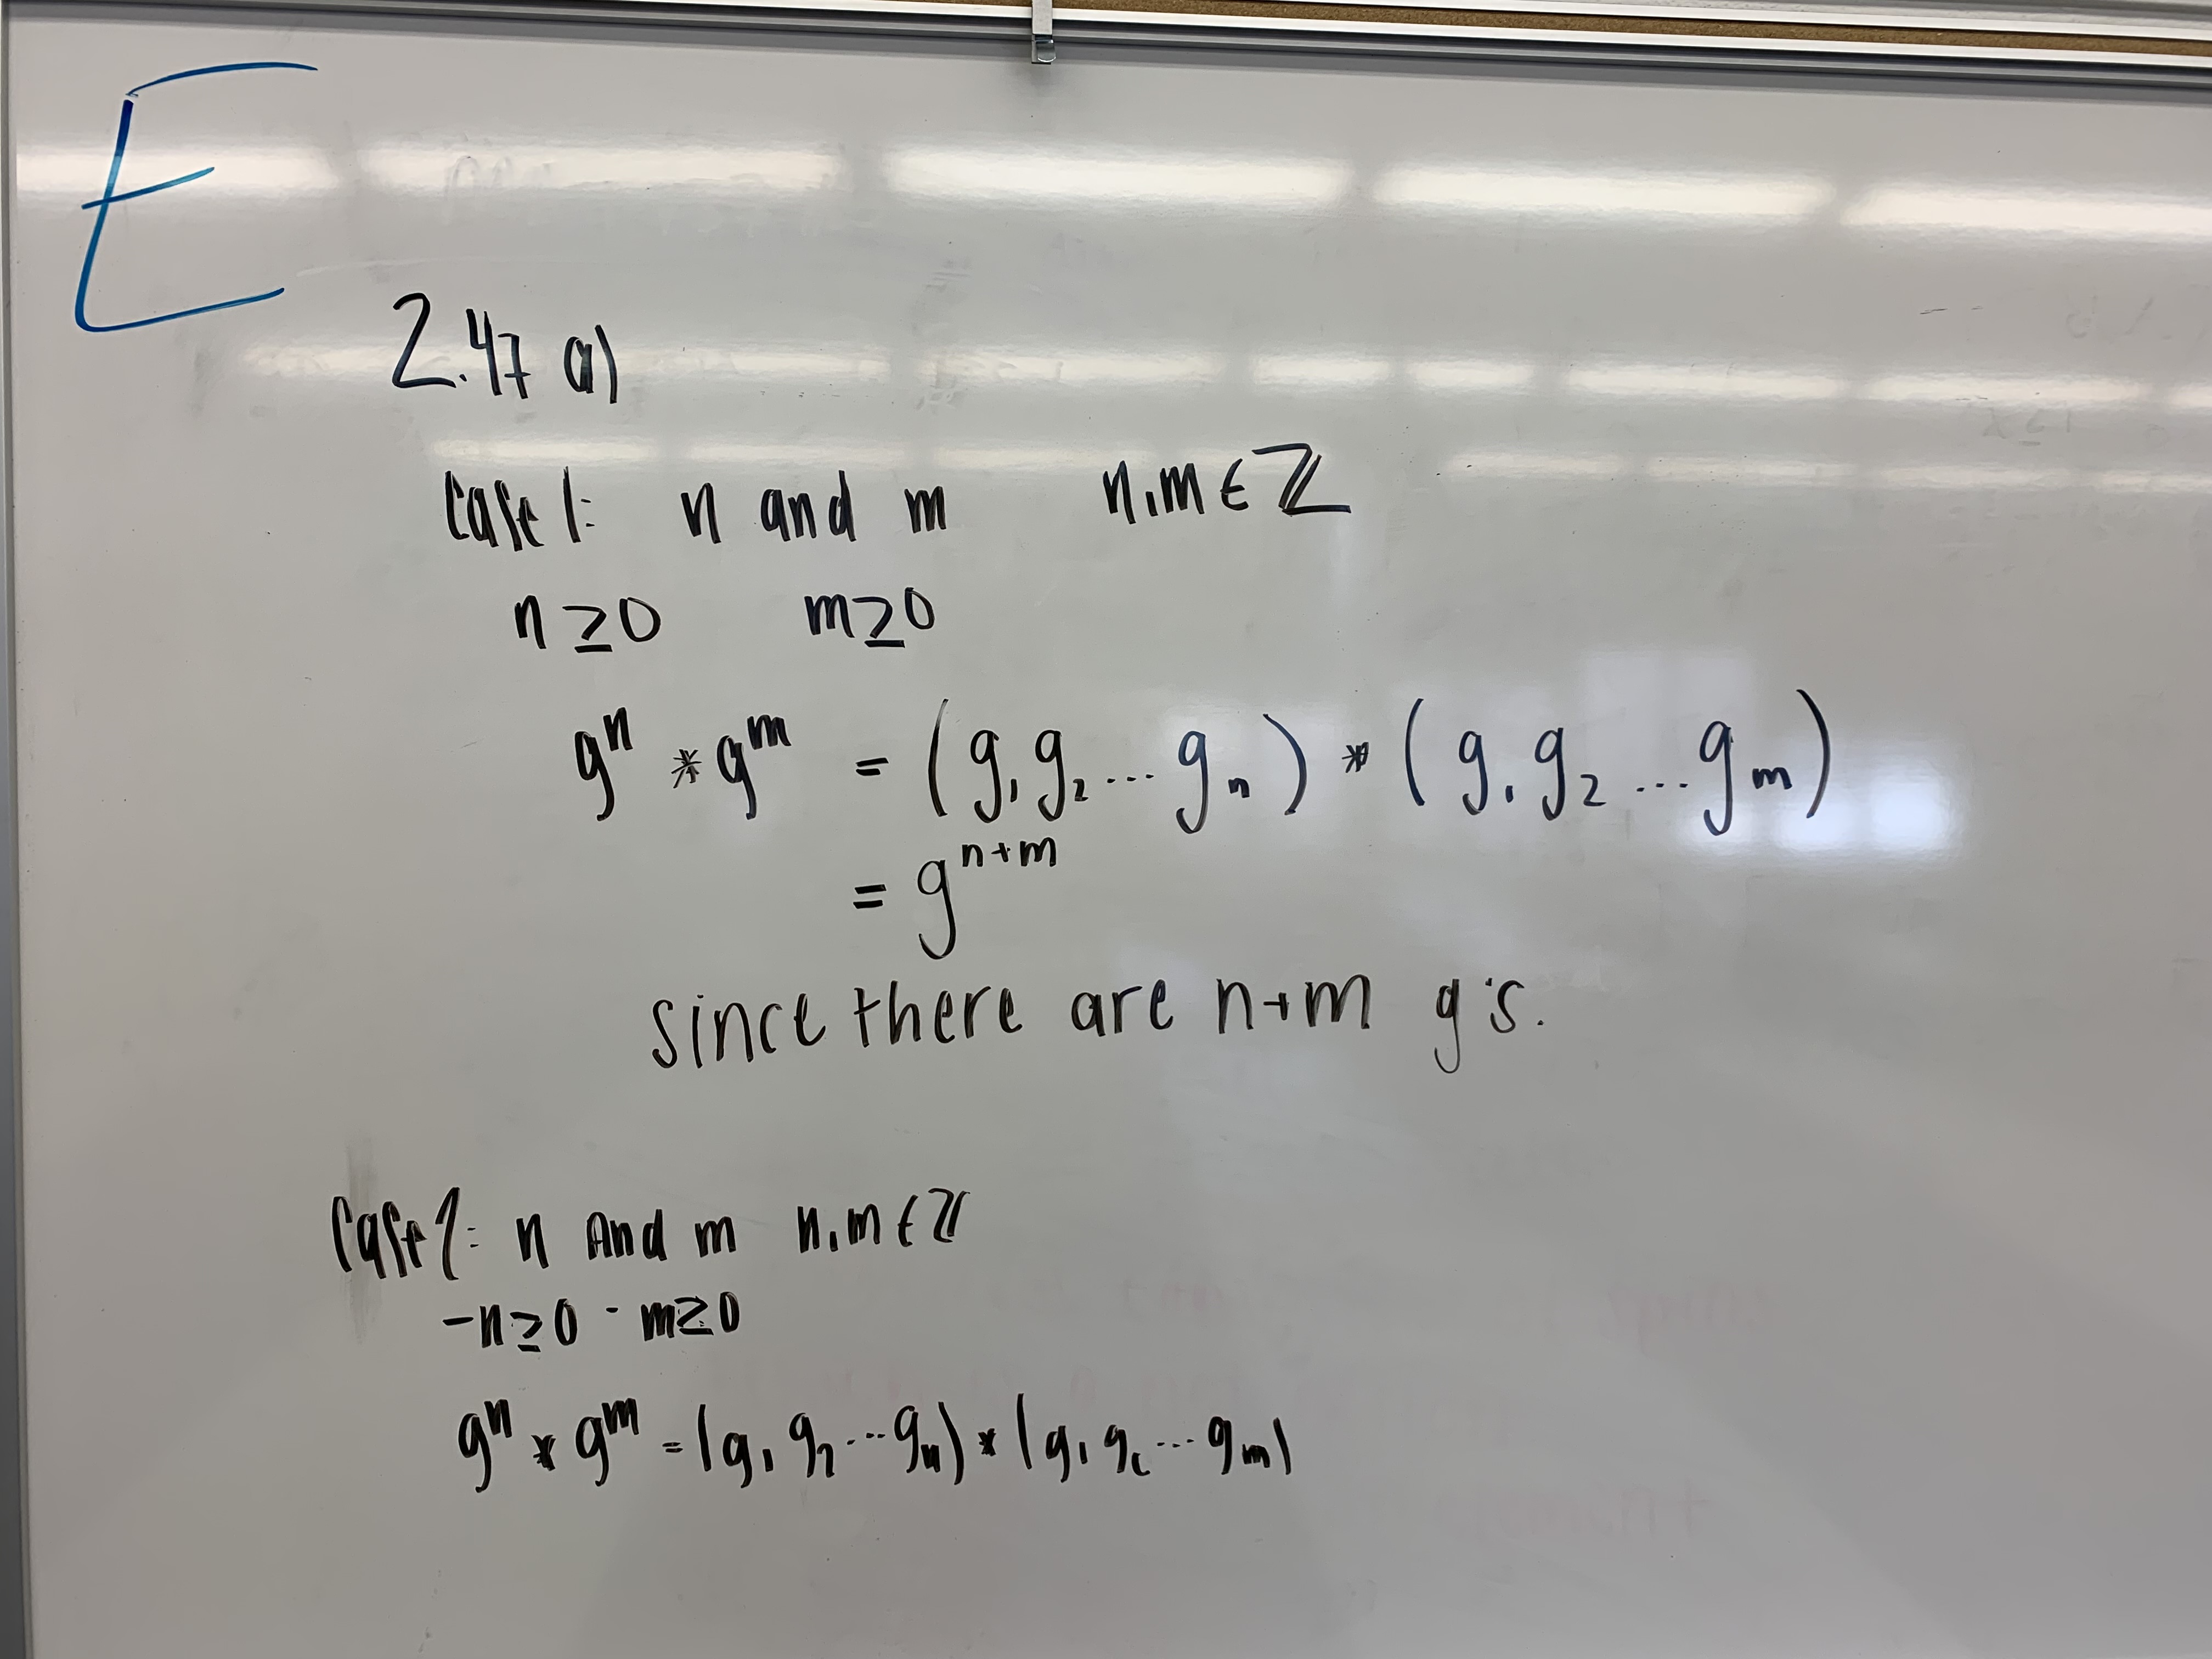 E
2.47 a)
Case 1: n and m n,m ∈ ℤ
n ≥ 0 m ≥ 0
gⁿ * gᵐ = (g₁ g₂ ... gₙ) * (g₁ g₂ ... gₘ)
= gⁿ⁺ᵐ
since there are n+m g's.
Case 2: n and m n,m ∈ ℤ
-n ≥ 0 -m ≥ 0
gⁿ * gᵐ = (g₁ g₂ ... gₙ) * (g₁ g₂ ... gₘ)